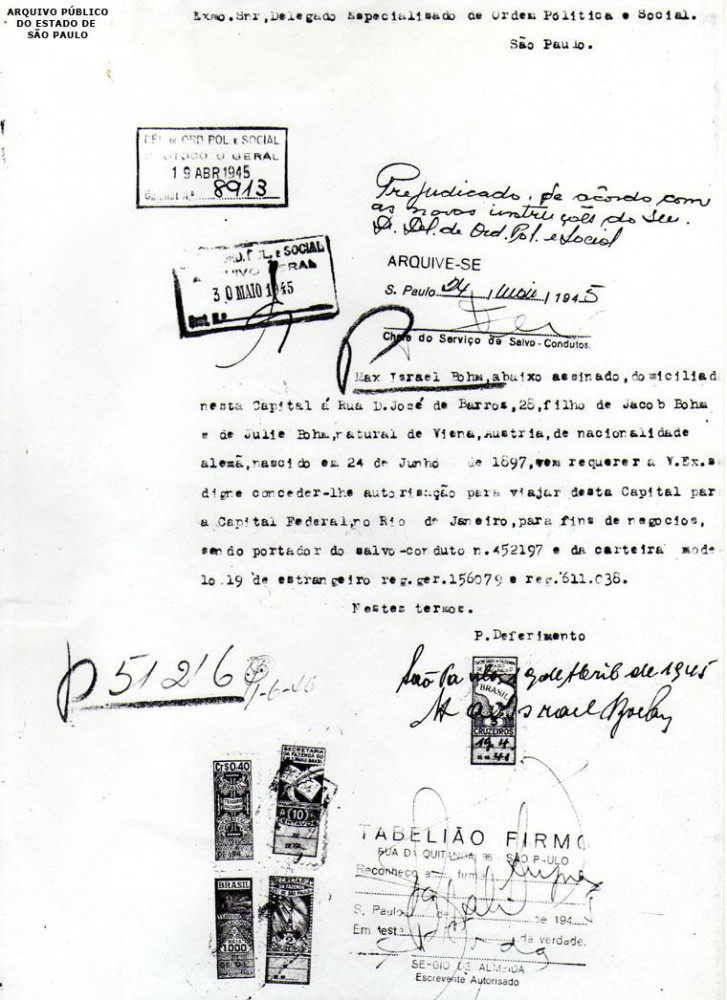 ARQUIVO PÚBLICO
DO ESTADO DE
SÃO PAULO
Exmo.Snr,Delegado Especialisado de Ordem Política e Social.
São Paulo.
DEL DE ORD POL E SOCIAL
GERAL
19 ABR 1945
8913
Prejudicado, de acôrdo com
as novas instruções do Snr.
Dr. Del. de Ord. Pol. e Social
ARQUIVE-SE
S. Paulo 24 / maio / 1945
Chefe do Serviço de Salvo-Condutos.
ORD. POL. E SOCIAL
ARQUIVO GERAL
30 MAIO 1945
Max Israel Bohm,abaixo assinado,domiciliad
nesta Capital á Rua D.José de Barros,28,filho de Jacob Bohm
e de Julie Bohm,natural de Viena,Austria,de nacionalidade
alemã,nascido em 24 de Junho de 1897,vem requerer a V.Ex.se
digne conceder-lhe autorisação para viajar desta Capital par
a Capital Federal,no Rio de Janeiro,para fins de negocios,
sendo portador do salvo-conduto n.452197 e da carteira mode
lo.19 de estrangeiro reg.ger.156079 e reg.611.038.
Nestes termos.
P.Deferimento
51216
São Paulo, 19 de Abril de 1945
Max Israel Bohm
BRASIL
3
CRUZEIROS
19 4
Cr$0.40
SECRETARIA
DA FAZENDA DO
(10)
CENTAVOS
BRASIL
1000
SECRETARIA
DA FAZENDA
2
TABELIÃO FIRMO
RUA DA QUITANDA 96 - SÃO PAULO
Reconheço a firma
S. Paulo de de 1945
Em test. da verdade.
SERGIO DE ALMEIDA
Escrevente Autorisado